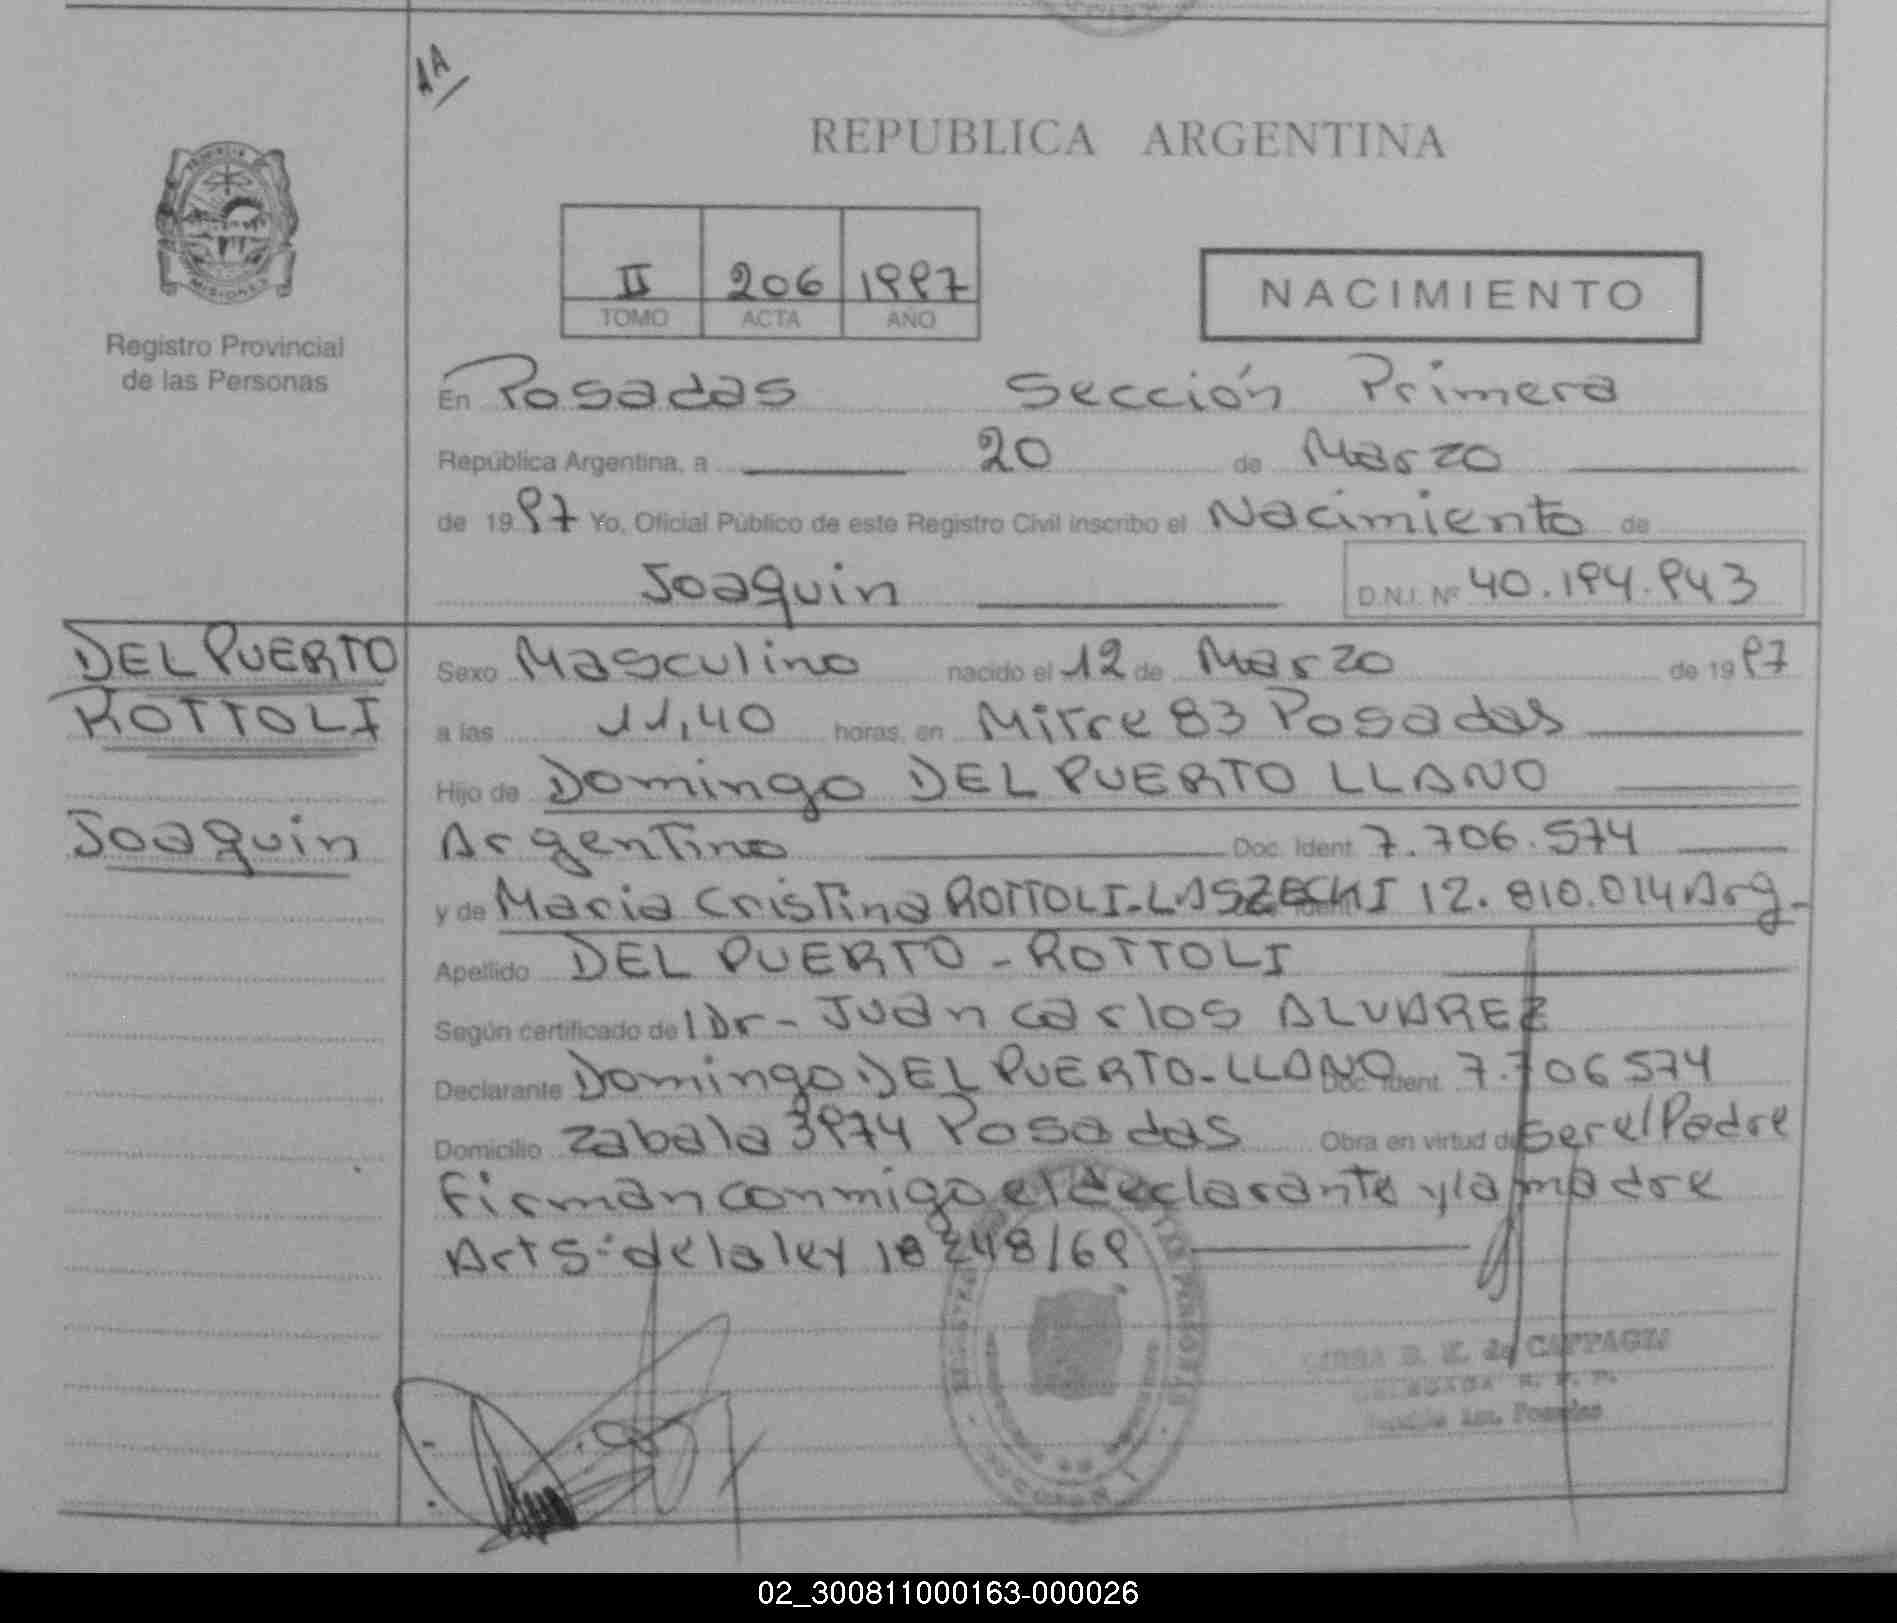 AA
REPUBLICA ARGENTINA
II 206 1997
TOMO ACTA AÑO
NACIMIENTO
MISIONES
Registro Provincial
de las Personas
En Posadas Sección Primera
República Argentina, a 20 de Marzo
de 1997 Yo, Oficial Público de este Registro Civil inscribo el Nacimiento de
Joaquin D.N.I. Nº 40.194.943
DEL PUERTO
ROTTOLI
Joaquin
Sexo Masculino nacido el 12 de Marzo de 1997
a las 11,40 horas, en Mitre 83 Posadas
Hijo de Domingo DEL PUERTO LLANO
Argentino Doc. Ident. 7.706.574
y de Maria Cristina ROTTOLI-LASZECKI 12.810.014 Arg-
Apellido DEL PUERTO - ROTTOLI
Según certificado del Dr- Juan Carlos ALVAREZ
Declarante Domingo DEL PUERTO-LLANO Doc. Ident. 7.706574
Domicilio Zabala 3974 Posadas Obra en virtud de ser el Padre
Firman conmigo el declarante y la madre
Art 5: de la ley 18248/69
de CAFFAGNI
02_300811000163-000026